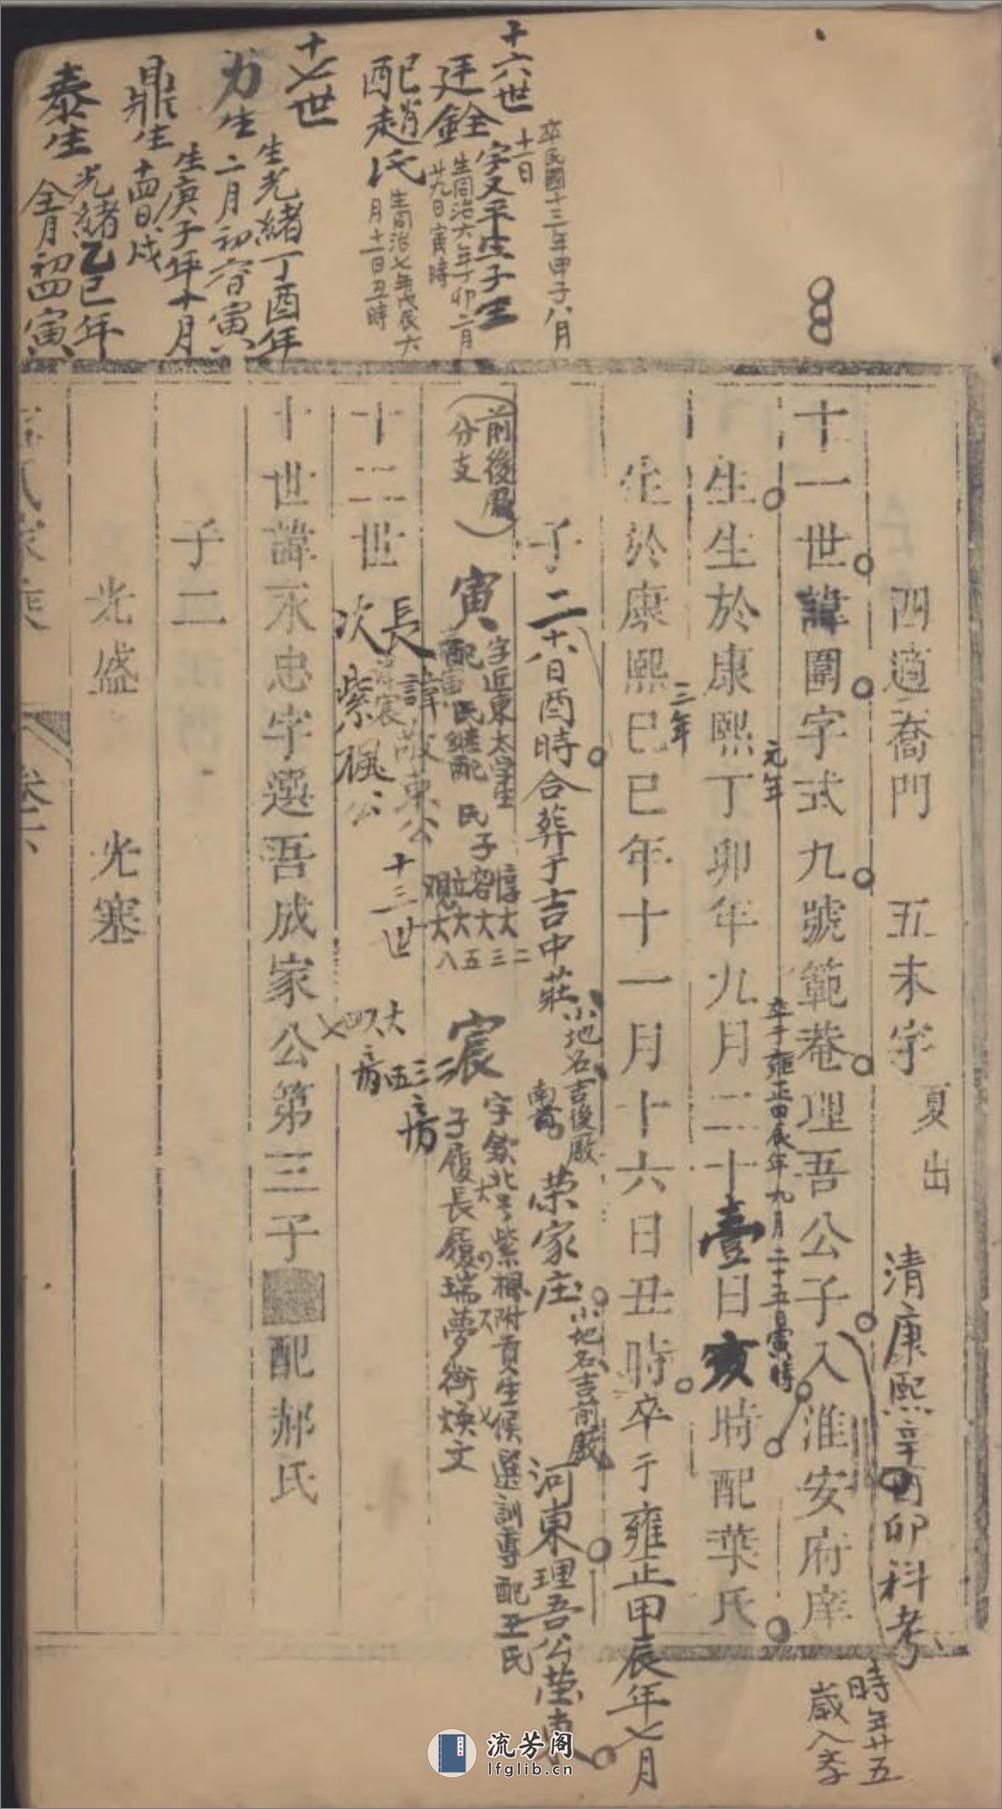 十六世
廷銓
字又平生子三
生同治六年丁卯二月
廿九日寅時
卒民國十三年甲子八月
十一日
配趙氏
生同治七年戊辰六
月十一日丑時
十七世
乃生
生光緒丁酉年
二月初
寅
鼎生
生庚子年十月
十四日戌
泰生
光緒乙巳年
全月初四寅
四適喬門　五未字
夏出
清康熙辛酉卯科考
時年廿五
歲入学
十一世諱圍字式九號範菴理吾公子入淮安府庠
元年
卒于雍正甲辰年九月二十五日寅時
生生於康熙丁卯年九月二十壹日亥時配葉氏
三年
生於康熙己巳年十一月十六日丑時卒于雍正甲辰年七月
子二
十八日酉時合葬于吉中莊
小地名吉後廠
南蒿
荣家庄
小地名吉前廠
河東理吾公塋東
（前後廠
分支）
寅
字近東太学生
配
氏継配　氏
子
惇大二
容大三
立大五
觀大八
宸
字欽北号紫楓附貢生候選訓導配王氏
子履長履瑞夢衛煥文
十二世
長諱
東公
次
紫楓公
十三世
二三五之房
大八四之房
十世諱永忠字選吾成家公第三子
配郝氏
子二
光盛　光塞
氏家乘
卷六
流芳阁
lfglib.cn